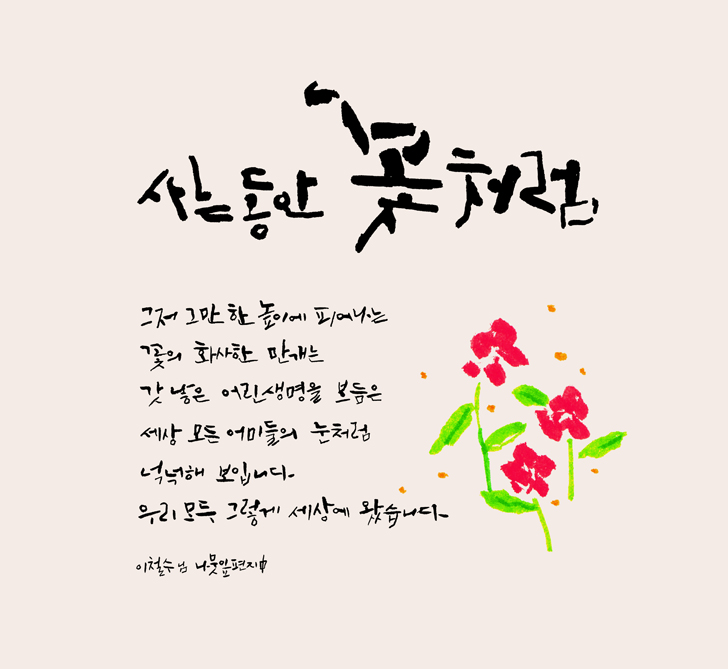 사는동안 꽃처럼
그저 그만한 높이에 피어나는
꽃의 화사한 만개는
갓 낳은 어린생명을 보듬은
세상 모든 어미들의 눈처럼
넉넉해 보입니다.
우리 모두 그렇게 세상에 왔습니다.
이철수님 나뭇잎편지中